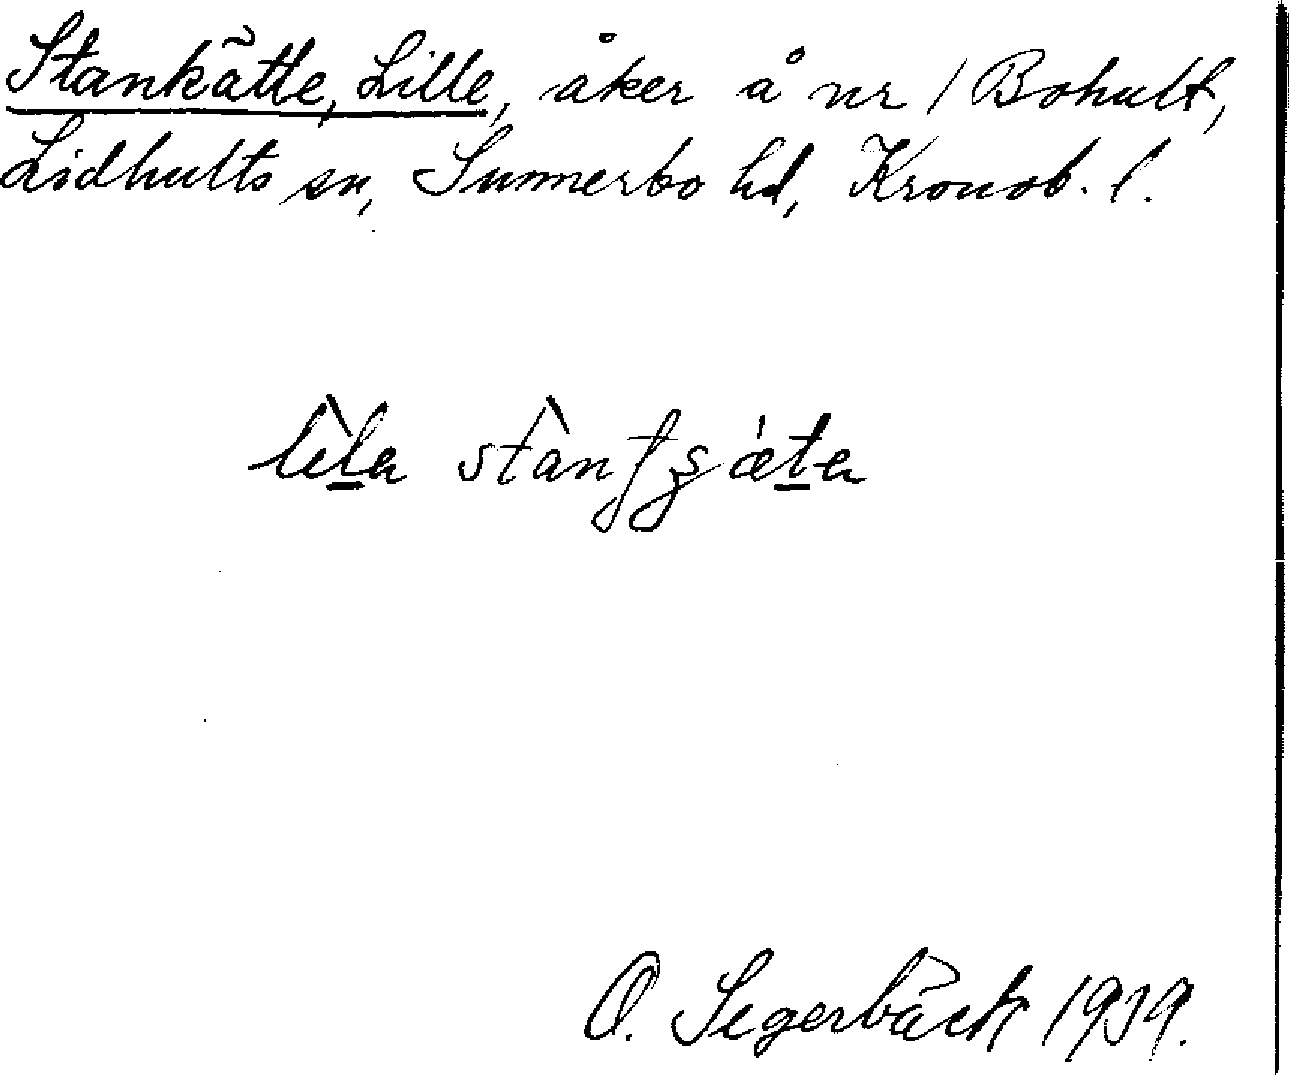 Stankätte, Lille, åker å nr 1 Bohult,
Lidhults sn, Sunnerbo hd, Kronob. l.
O. Segerbäck 1939.